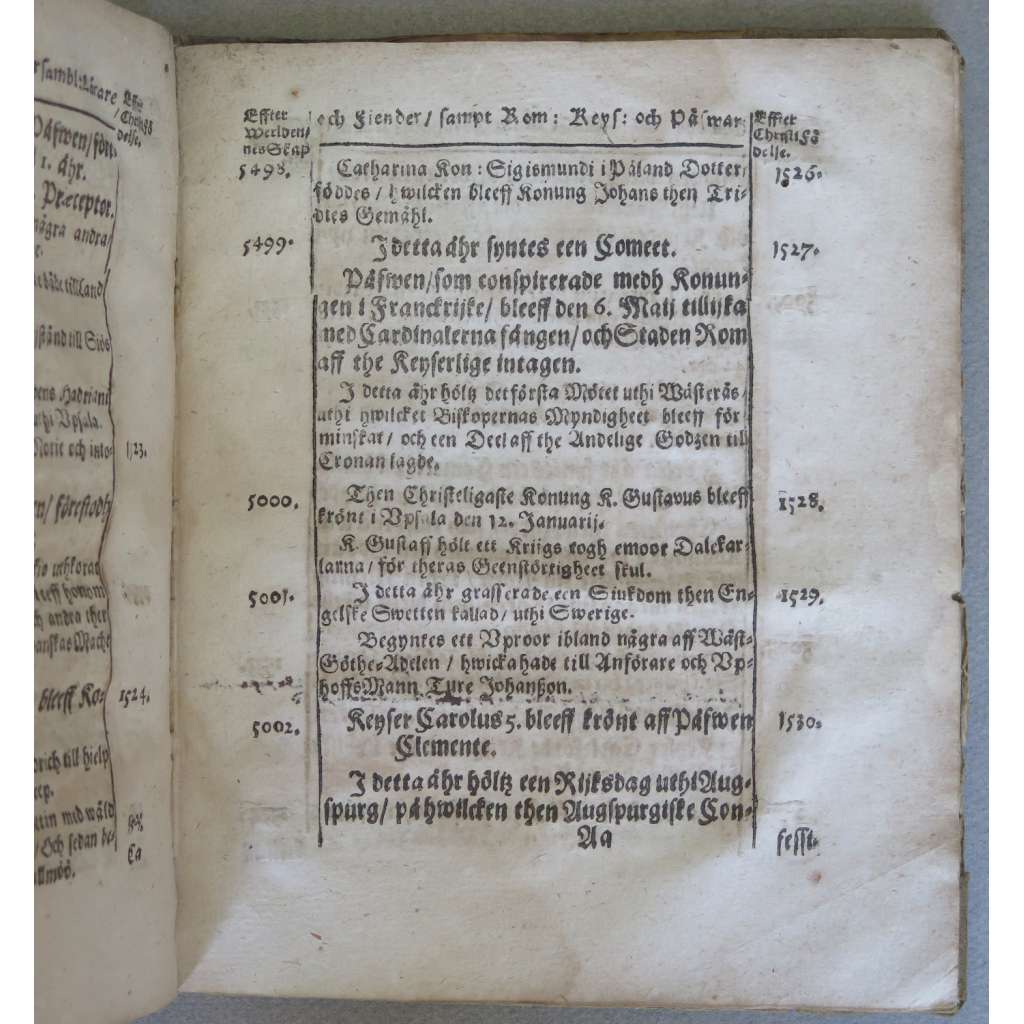 sambl: Lärare
Effter
Christi Fö
delse.
Påfwen/
1. åhr.
Præceptor.
några andra/
till Land
till Siös
Hadriani
Vpsala.
1523.
/ förestodh
uthkorat
bleeff honom
och andra ther
Macht
bleeff Ko-
1524.
till hielp
med wåld
/ Och sedan be-
Ca
Effter
Werlden/
nes Skap
och Fiender / sampt Rom: Keys: och Påfwar.
Effter
Christi Fö
delse.
5498.
Catharina Kon: Sigismundi i Påland Dotter/
1526.
föddes / hwilcken bleeff Konung Johans then Tri-
dies Gemåhl.
5499.
I detta åhr syntes een Comeet.
1527.
Påfwen/som conspirerade medh Konun-
gen i Franckrijke/ bleeff den 6. Maij tillijka
med Cardinalerna fången/ och Staden Rom
aff the Keyserlige intagen.
I detta åhr höltz det första Mötet uthi Wästerås/
uthi hwilcket Biskopernas Myndigheet bleeff för
minskat/ och een Deel aff the Andelige Godzen till
Cronan lagde.
5000.
Then Christeligaste Konung K. Gustavus bleeff
1528.
krönt i Vpsala den 12. Januarij.
K. Gustaff hölt ett Kriigs togh emoor Dalekar-
larna/ för theras Geenstörtigheet skul.
5001.
I detta åhr grasserade een Siukdom then En-
1529.
gelske Swetten kallad/ uthi Swerige.
Begyntes ett Vproor ibland några aff Wäst-
Göthe-Adelen / hwicka hade till Anförare och Vp-
hoffs Mann Ture Johanßon.
5002.
Keyser Carolus 5. bleeff krönt aff Påfwen
1530.
Clemente.
I detta åhr höltz een Rijksdag uthi Aug-
spurg/ på hwilcken then Augspurgiske Con-
Aa
fessi-